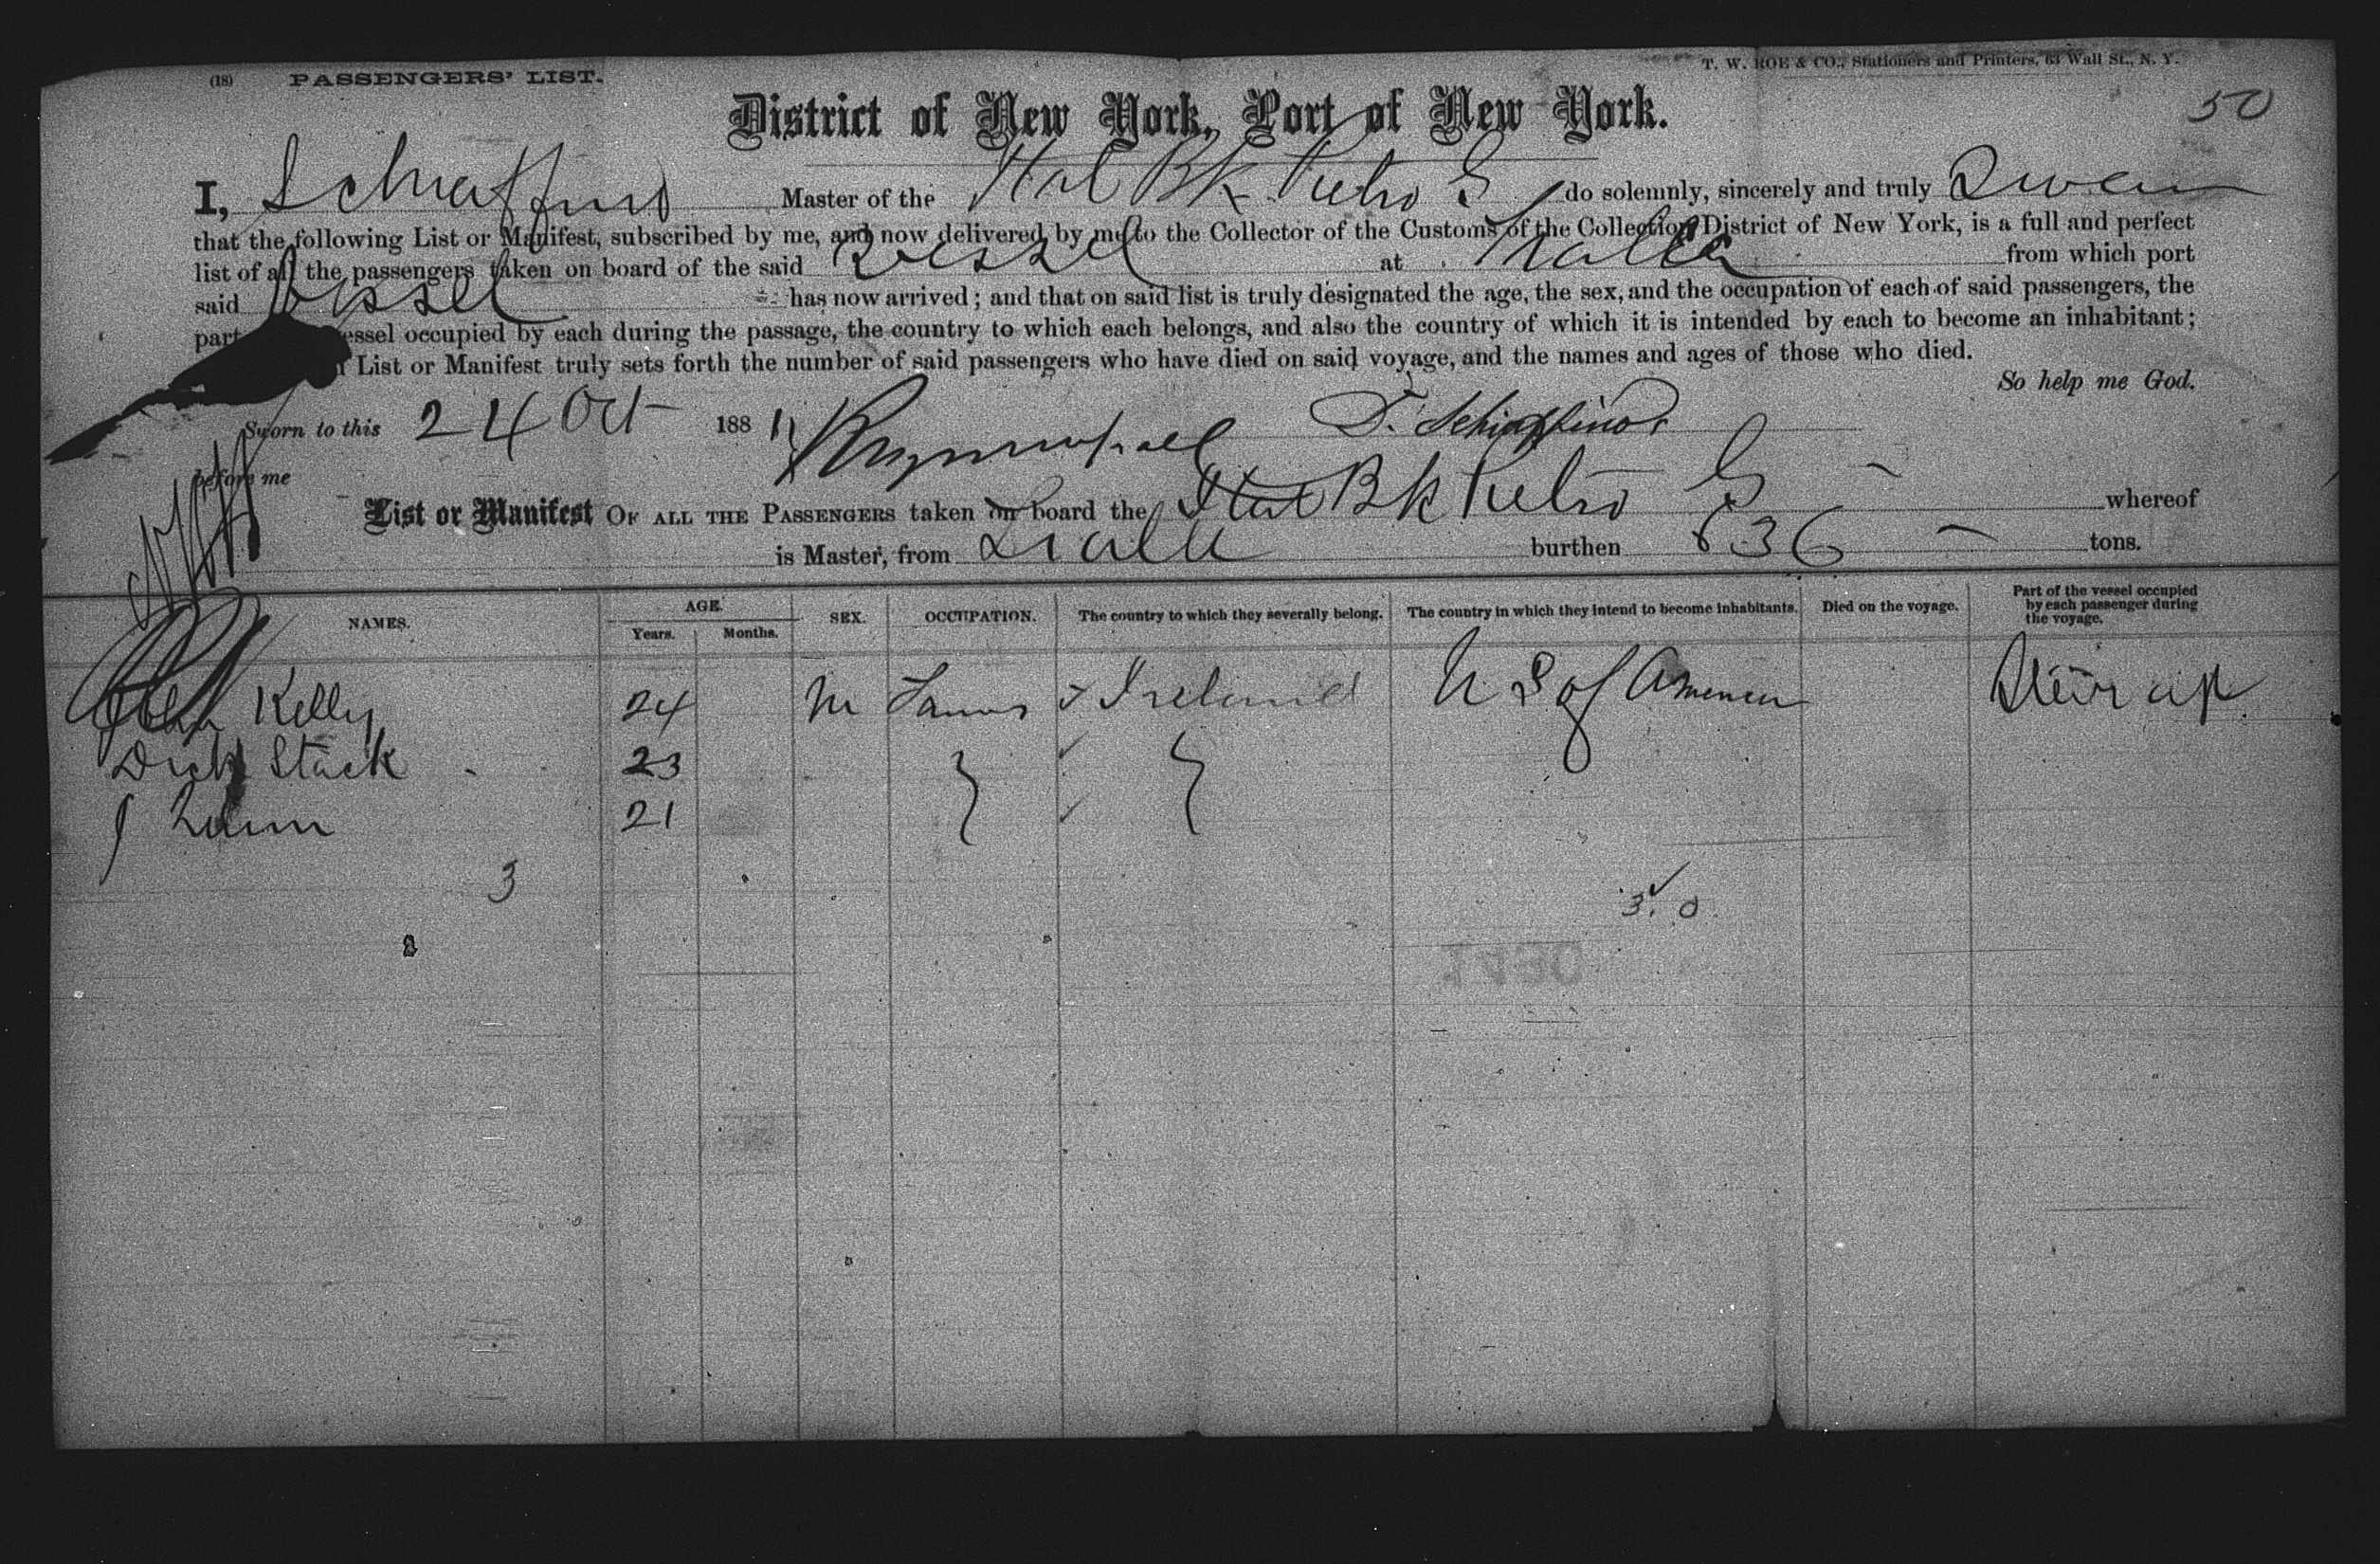 (18) PASSENGERS' LIST.
T. W. ROE & CO., Stationers and Printers, 63 Wall St., N. Y.
50
District of New York, Port of New York.
I, Schiaffino Master of the Ital Bk Pietro G do solemnly, sincerely and truly Swear
that the following List or Manifest, subscribed by me, and now delivered by me to the Collector of the Customs of the Collection District of New York, is a full and perfect
list of all the passengers taken on board of the said Vessel at Tralee from which port
said Vessel has now arrived; and that on said list is truly designated the age, the sex, and the occupation of each of said passengers, the
part essel occupied by each during the passage, the country to which each belongs, and also the country of which it is intended by each to become an inhabitant;
List or Manifest truly sets forth the number of said passengers who have died on said voyage, and the names and ages of those who died.
So help me God.
Sworn to this 24 Oct 1881 F. Schiaffino
before me
List or Manifest OF ALL THE PASSENGERS taken on board the Ital Bk Pietro G whereof
is Master, from Tralee burthen 636 tons.
NAMES. AGE. Years. Months. SEX. OCCUPATION. The country to which they severally belong. The country in which they intend to become inhabitants. Died on the voyage. Part of the vessel occupied by each passenger during the voyage.
John Kelly 24 M Ireland U S of America
Dick Stack 23
J Quinn 21
3
3. 0
DEPT.